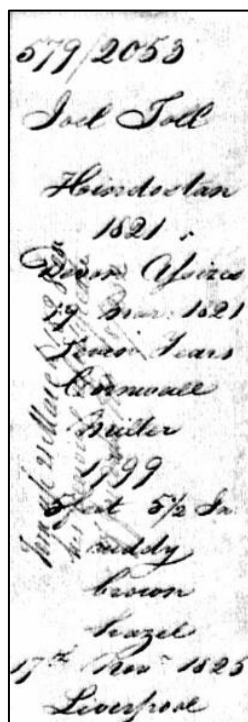 579/2053
Joel Toll
Hindostan
1821
Devon Assizes
19 Mar. 1821
Seven Years
Cornwall
Miller
1799
5 feet 5½ In
ruddy
brown
hazel
17th Nov 1825
Liverpool